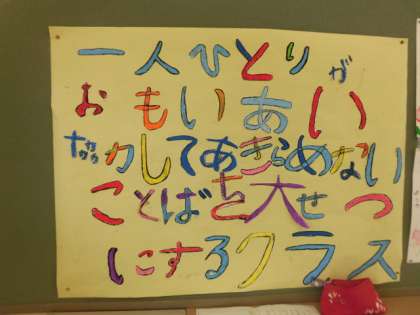 一人ひとりが
おもいあい
協力してあきらめない
ことばを大せつ
にするクラス